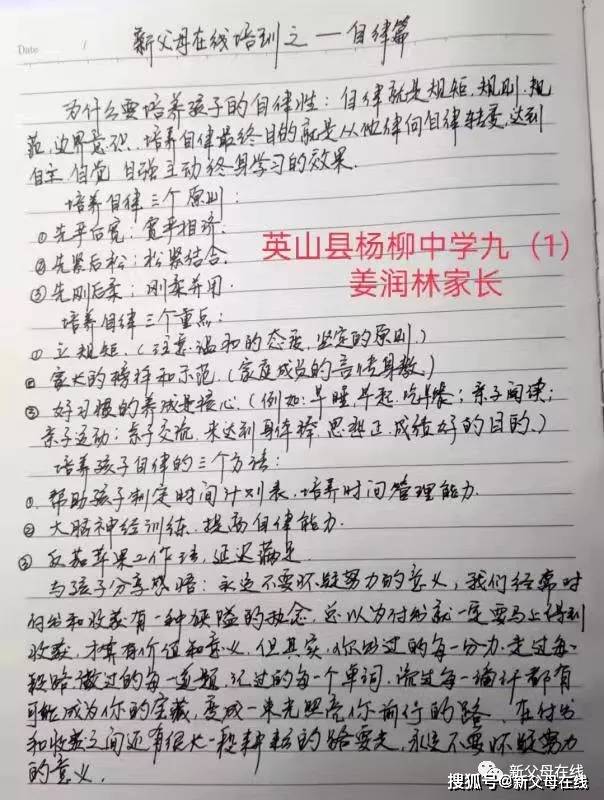 Date /
新父母在线培训之一自律篇
为什么要培养孩子的自律性：自律就是规矩、规则、规
范、边界意识。培养自律最终目的就是从他律向自律转变，达到
自主、自觉、自强主动终身学习的效果。
培养自律三个原则：
①先严后宽：宽严相济。
②先紧后松：松紧结合。
③先刚后柔：刚柔并用。
英山县杨柳中学九（1）
姜润林家长
培养自律三个重点：
① 立规矩.（注意:温和的态度、坚定的原则.）
② 家长的榜样和示范.（家庭成员的言传身教.）
③ 好习惯的养成是核心.（例如:早睡早起.吃早餐；亲子阅读；
亲子互动；亲子交流 来达到身体棒 思想正.成绩好的目的.）
培养孩子自律的三个方法：
①.帮助孩子制定时间计划表.培养时间管理能力.
② 大脑神经训练.提高自律能力.
③ 番茄苹果工作法，延迟满足
与孩子分享感悟：永远不要怀疑努力的意义，我们经常对
付出和收获有一种硬性的执念，总以为付出就一定要马上得到
收获，才算有价值和意义.但其实.你努过的每一分力.走过每一
段路 做过的每一道题.记过的每一个单词.流过每一滴汗都有
可能成为你的宝藏，变成一束光照亮你前行的路。在付出
和收获之间还有很长一段耕耘的路要走，永远不要怀疑努力
的意义.
新父母在线
搜狐号@新父母在线